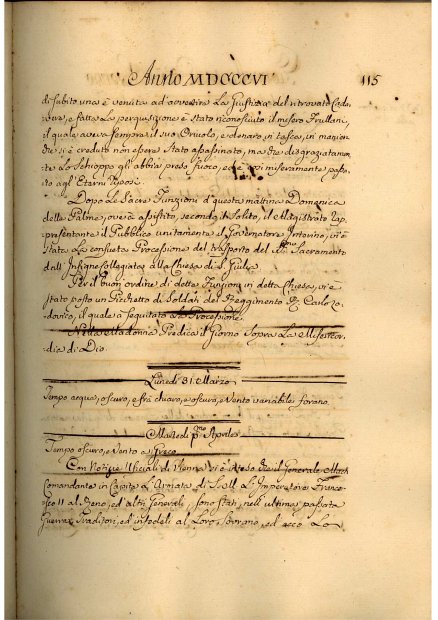 Anno MDCCCVI 115
di subito una è venuta ad avvertire La Giustizia del ritrovato Cada-
vere, e fatta La perquisizione è stato riconosciuto il misero Frullani,
il quale aveva sempre il suo Oriuolo, e denaro in tasca, in maniera
che si è creduto non essere stato assassinato, ma che disgraziatamen-
te Lo Schioppo gli abbia preso fuoco, ed è ivi miseramente passa-
to agl'Eterni riposi.
Dopo Le Sacre Funzioni di questa mattina Domenica
delle Palme, ove à assistito, secondo il Solito, il Magistrato rap-
presentante il Pubblico unitamente il Governatore Interino, vi è
stata La consueta Processione del trasporto del Sacramento
dall'Insigne Collegiata alla Chiesa di S. Giulia
Per il buon ordine di dette Funzioni in detta Chiesa, vi è
stato posto un Picchetto di Soldati del Reggimento R. Carlo Lo-
dovico, il quale à seguitato La Processione.
Nella Madonna Predica il Giorno Sopra La Misericor-
dia di Dio.
Lunedì 31. Marzo
Tempo acqua, oscuro, e frà chiaro, e oscuro, e Vento variabile forano
Martedì p.mo Aprile
Tempo oscuro, e Vento a Greco
Con Notizie Uficiali di Vienna si è inteso che il Generale Mach
Comandante in Capite L'Armata di S. M. L'Imperatore France-
sco II al Reno, ed altri Generali, sono stati, nell'ultima passata
Guerra, Traditori, ed infedeli al Loro Sovrano, ed ecco Lo